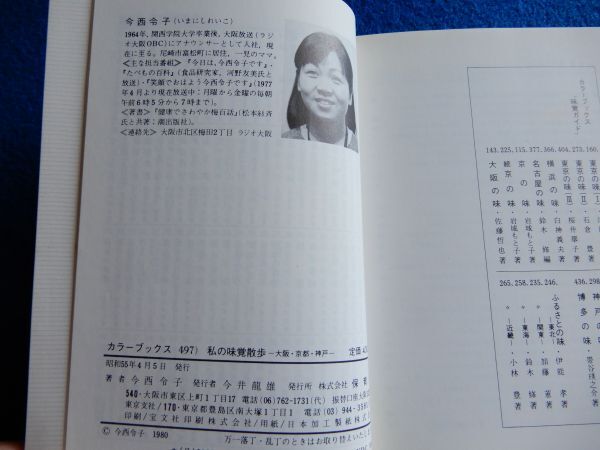 今西令子(いまにしれいこ)
1964年、関西学院大学卒業後、大阪放送(ラジ
オ大阪OBC)にアナウンサーとして入社、現
在に至る。尼崎市富松町に居住、一児のママ。
<主な担当番組>『今日は、今西令子です』・
『たべもの百科』(食品研究家、河野友美氏と
放送)・『笑顔でおはよう今西令子です』(1977
年4月より現在放送中：月曜から金曜の毎朝
午前6時5分から7時まで)。
<著書>『健康でさわやか梅百話』(松本紋斉
氏と共著：潮出版社)。
<連絡先> 大阪市北区梅田2丁目 ラジオ大阪
カラーブックス 497) 私の味覚散歩 −大阪・京都・神戸− 定価
昭和55年4月5日 発行
著者 今西令子 発行者 今井龍雄 発行所 株式会社 保
540・大阪市東区上町1丁目17 電話(06)762-1731(代) 振替口座大阪
東京支社/170・東京都豊島区南大塚1丁目1 電話(03)944-
印刷/宝文社印刷株式会社/用紙/日本加工製紙株式
©今西令子 1980 万一落丁・乱丁のときはお取り替えいたしま
カラーブックス
味覚ガイド
436. 神戸の味
298. 博多の味
160. 東京の味〔Ⅰ〕
273. 東京の味〔Ⅱ〕・石倉 豊著
404. 東京の味〔Ⅲ〕・桜井華子著
366. 横浜の味・白神義夫著
377. 名古屋の味・鈴木修編
115. 京の味・岩城もと子著
225. 続京の味・岩城もと子著
143. 大阪の味・佐藤哲也著
ふるさとの味
246. 〃 −東北−・伊能 孝著
235. 〃 −関東−・加藤 著
258. 〃 −東海−・鈴木 修著
265. 〃 −近畿−・小林 豊著